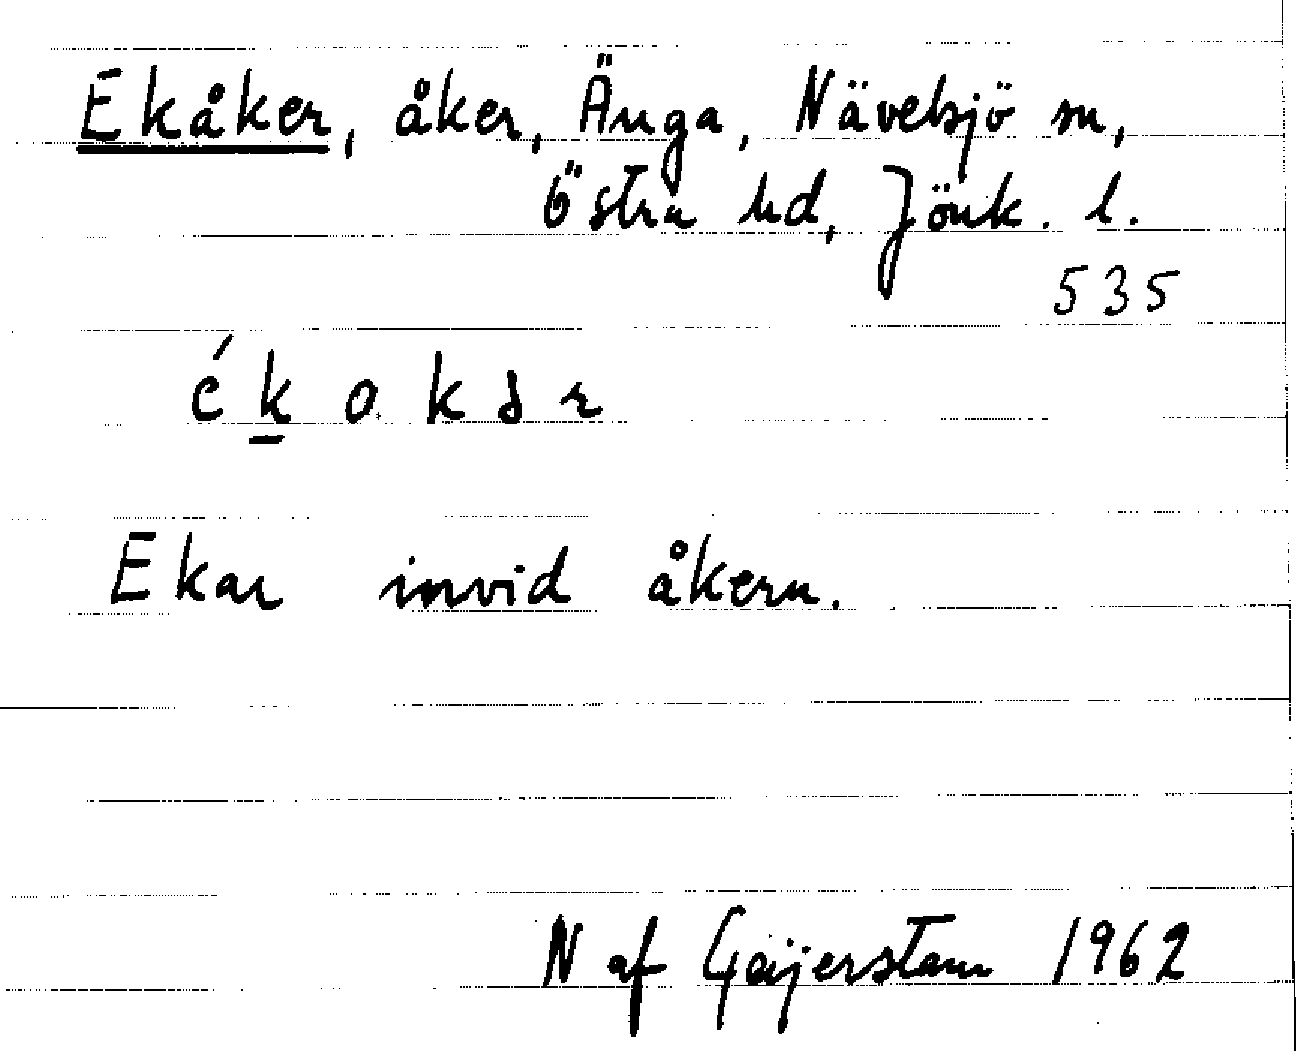 Ekåker, åker, Änga, Nävelsjö sn,
Östra hd, Jönk. l.
535
ékokər
Ekar invid åkern.
N af Geijerstam 1962